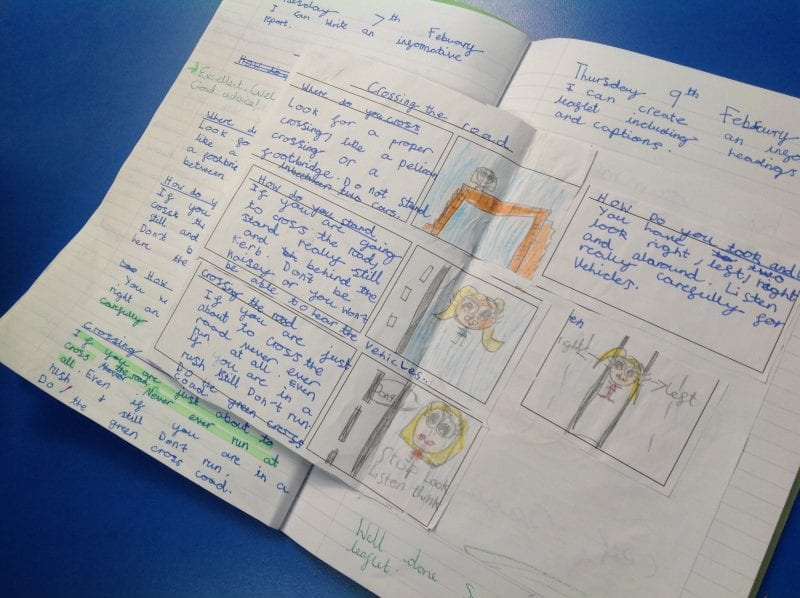 Tuesday 7th Febuary
I can write an informative
report.
How do
Excellent
Good advice!
Where d
Look fo
like a
a footbrid
between
How do y
If you
coset the
still and
Don't b
here the
How
You
right an
carefully
Crossing the road
If you are just about to
cross Never. Never ever run at
all. Even if you are in a
rush still Don't run.
Do the green cross coad.
Crossing the road
Where do you cross
Look for a proper
crossing, like a pelican
crossing or a
footbridge. Do not stand
inbetween two cars.
How do you stand
If you are going
to cross the road,
stand really still
and behind the
Kerb. Don't be
noisey or you won't
be able to hear the vehicles..
Crossing the road
If you are just
about to cross the
road Never ever
run at all. Even
if you are in a
rush still Don't run.
Do the green cross
coad
Don't
Stop Look
Listen think
Thursday 9th Febuury
I can create an info
leaflet including headings
and captions.
How do you look and li
You have to
look right, left, right
and alaround. Listen
really carefully for
vehicles.
en
right
left
Well done S
leaflet.